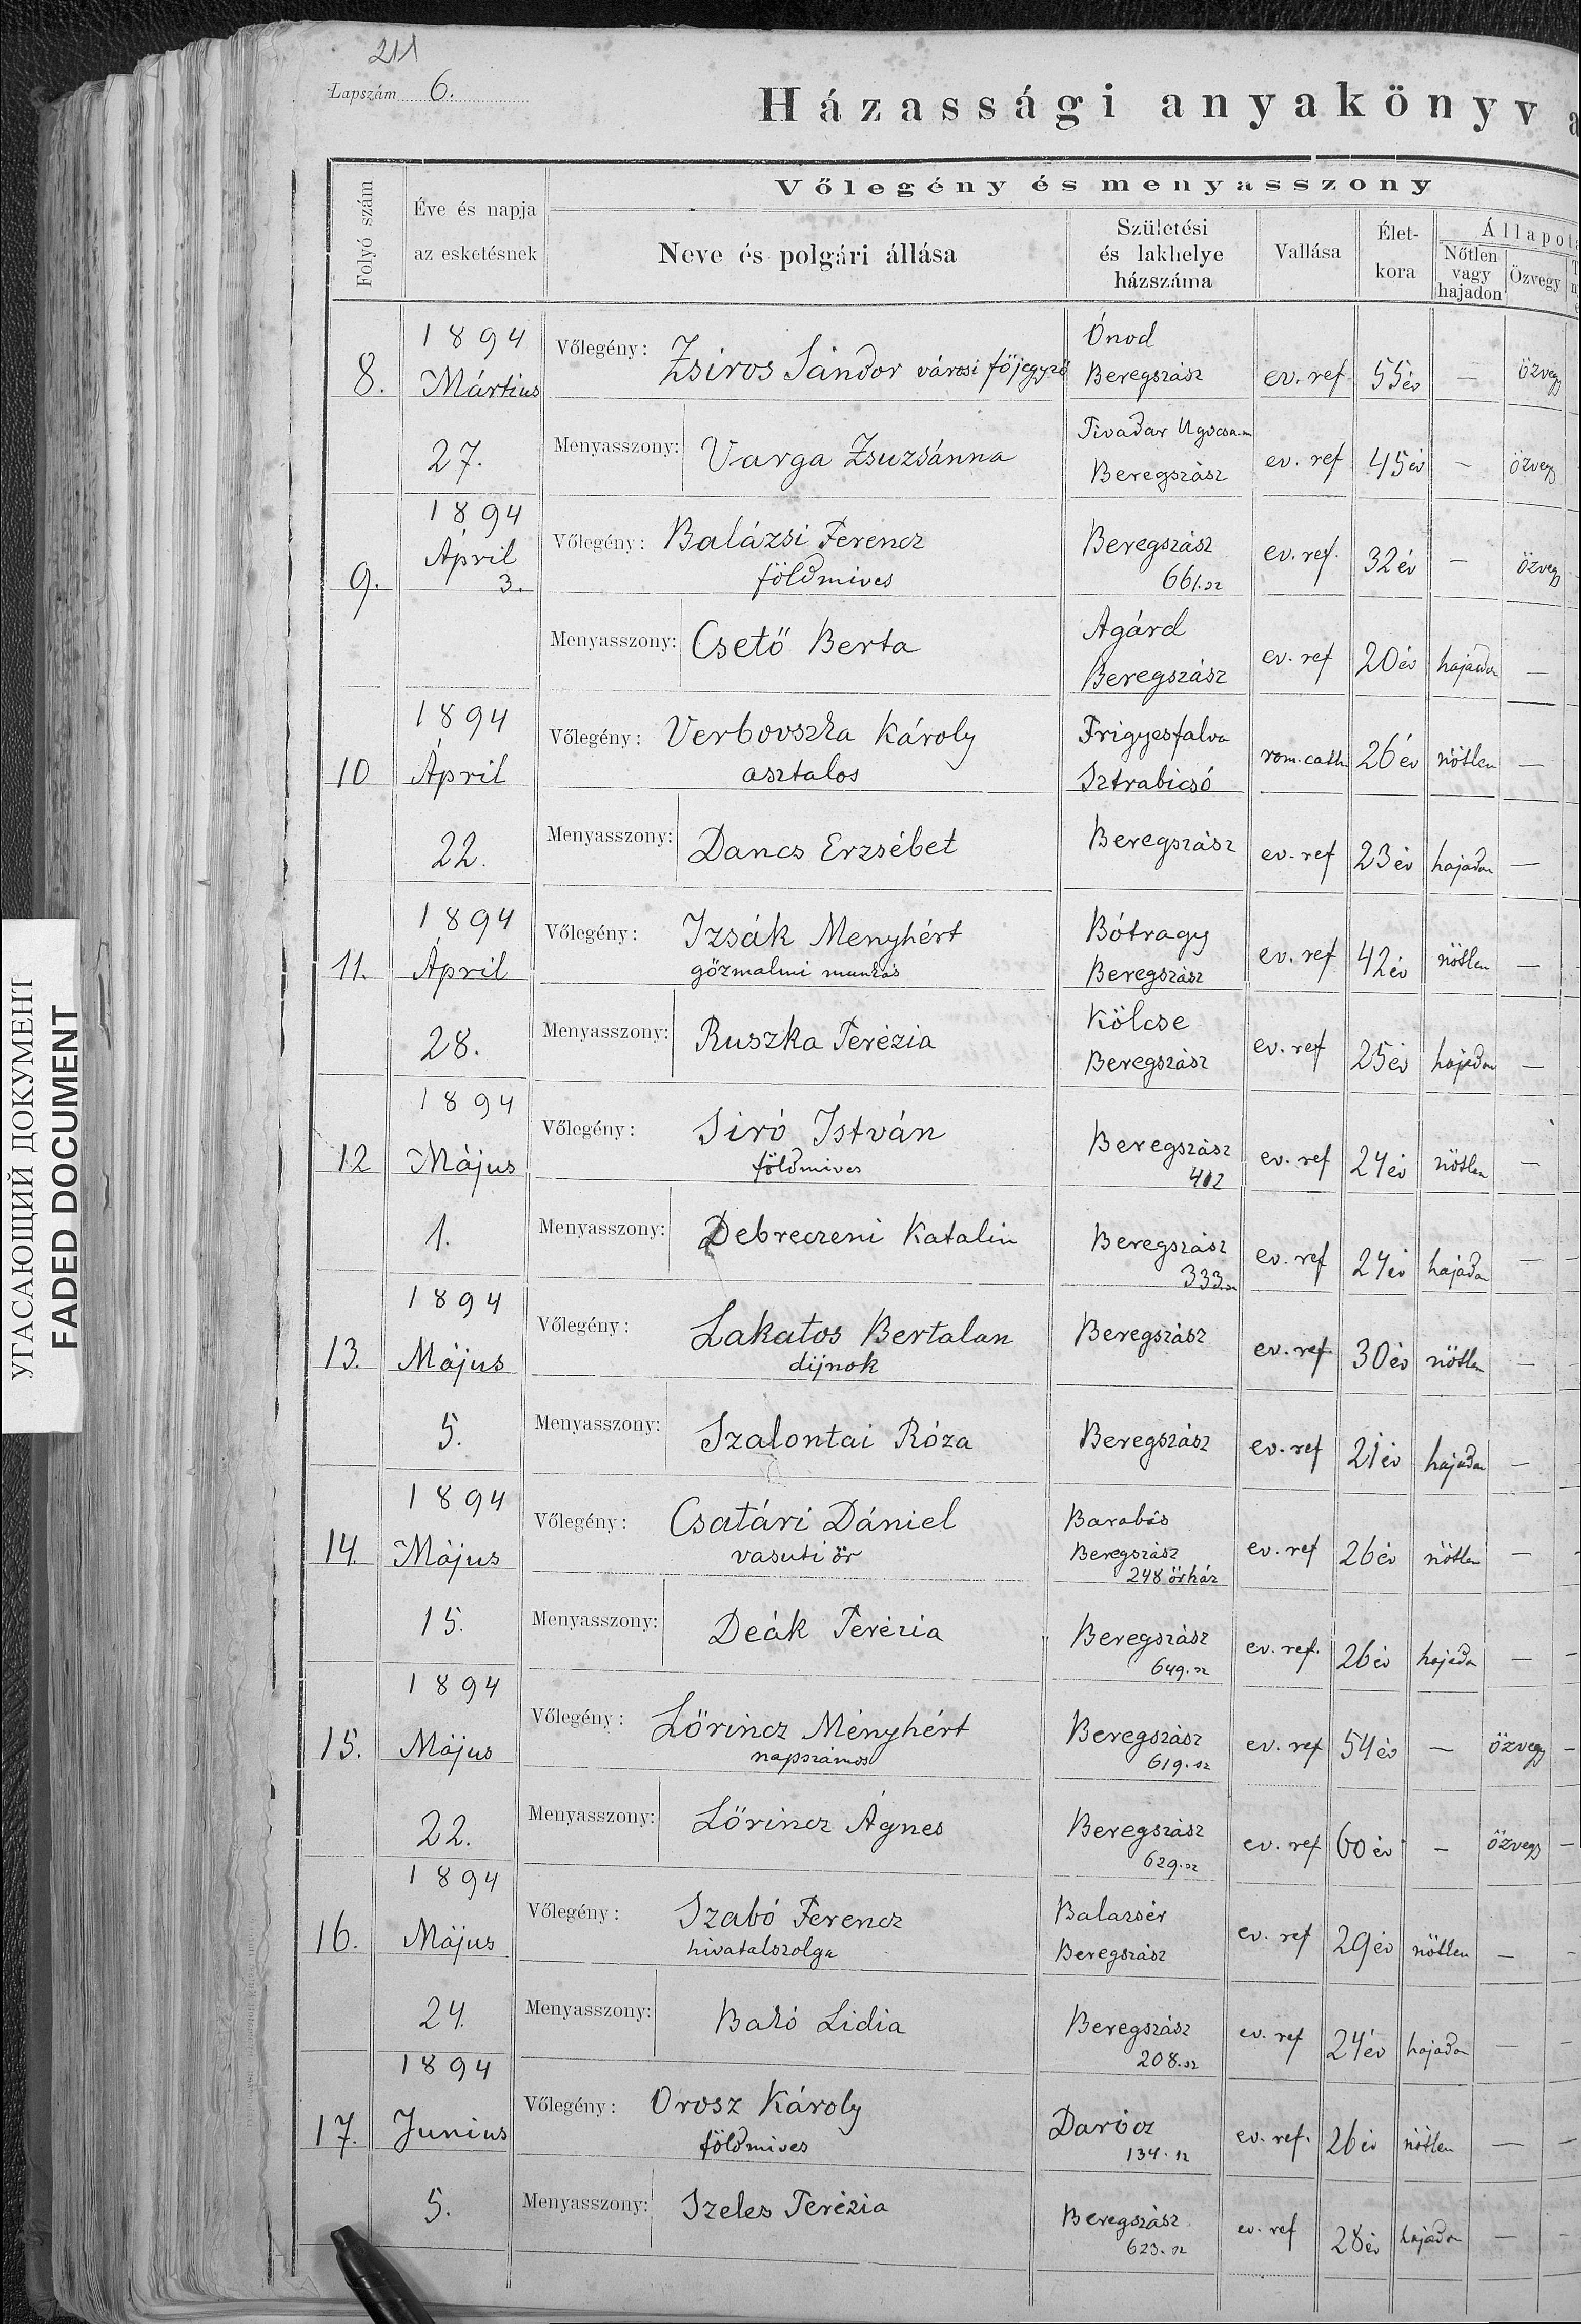 211
Lapszám 6.
Házassági anyakönyv a
Folyó szám
Éve és napja
az esketésnek
Vőlegény és menyasszony
Neve és polgári állása
Születési
és lakhelye
házszáma
Vallása
Élet-
kora
Állapot
Nőtlen
vagy
hajadon
Özvegy
8.
1894
Mártius
27.
Vőlegény: Zsiros Sándor városi főjegyző
Ónod
Beregszász
ev. ref. 55 év — özvegy
Menyasszony: Varga Zsuzsánna
Tivadar Ugocsa.m
Beregszász
ev. ref 45 év — özvegy
9.
1894
Ápril
3.
Vőlegény: Balázsi Ferencz
földmives
Beregszász
661.sz
ev. ref. 32 év — özvegy
Menyasszony: Csető Berta
Agárd
Beregszász
ev. ref 20 év hajadon —
10
1894
Ápril
22.
Vőlegény: Verbovszka Károly
asztalos
Frigyesfalva
Sztrabicsó
rom. cath 26 év nőtlen —
Menyasszony: Dancs Erzsébet
Beregszász
ev. ref 23 év hajadon —
11.
1894
Ápril
28.
Vőlegény: Izsák Menyhért
gőzmalmi munkás
Bótragy
Beregszász
ev. ref 42 év nőtlen —
Menyasszony: Ruszka Terézia
Kölcse
Beregszász
ev. ref 25 év hajadon —
12
1894
Május
1.
Vőlegény: Siró István
földmives
Beregszász
412
ev. ref 24 év nőtlen —
Menyasszony: Debreczeni Katalin
Beregszász
333.sz
ev. ref 24 év hajadon —
13.
1894
Május
5.
Vőlegény: Lakatos Bertalan
dijnok
Beregszász
ev. ref 30 év nőtlen —
Menyasszony: Szalontai Róza
Beregszász
ev. ref 21 év hajadon —
14.
1894
Május
15.
Vőlegény: Csatári Dániel
vasuti őr
Barabás
Beregszász
248 őrház
ev. ref 26 év nőtlen —
Menyasszony: Deák Terézia
Beregszász
649.sz
ev. ref. 26 év hajadon —
15.
1894
Május
22.
Vőlegény: Lőrincz Ményhért
napszámos
Beregszász
619.sz
ev. ref 54 év — özvegy
Menyasszony: Lőrincz Ágnes
Beregszász
629.sz
ev. ref 60 év — özvegy
16.
1894
Május
24.
Vőlegény: Szabó Ferencz
hivatalszolga
Balazsér
Beregszász
ev. ref 29 év nőtlen —
Menyasszony: Bakó Lidia
Beregszász
208.sz
ev. ref 24 év hajadon —
17.
1894
Junius
5.
Vőlegény: Orosz Károly
földmives
Darócz
134.sz
ev. ref. 26 év nőtlen —
Menyasszony: Szeles Terézia
Beregszász
623.sz
ev. ref 28 év hajadon —
УГАСАЮЩИЙ ДОКУМЕНТ
FADED DOCUMENT